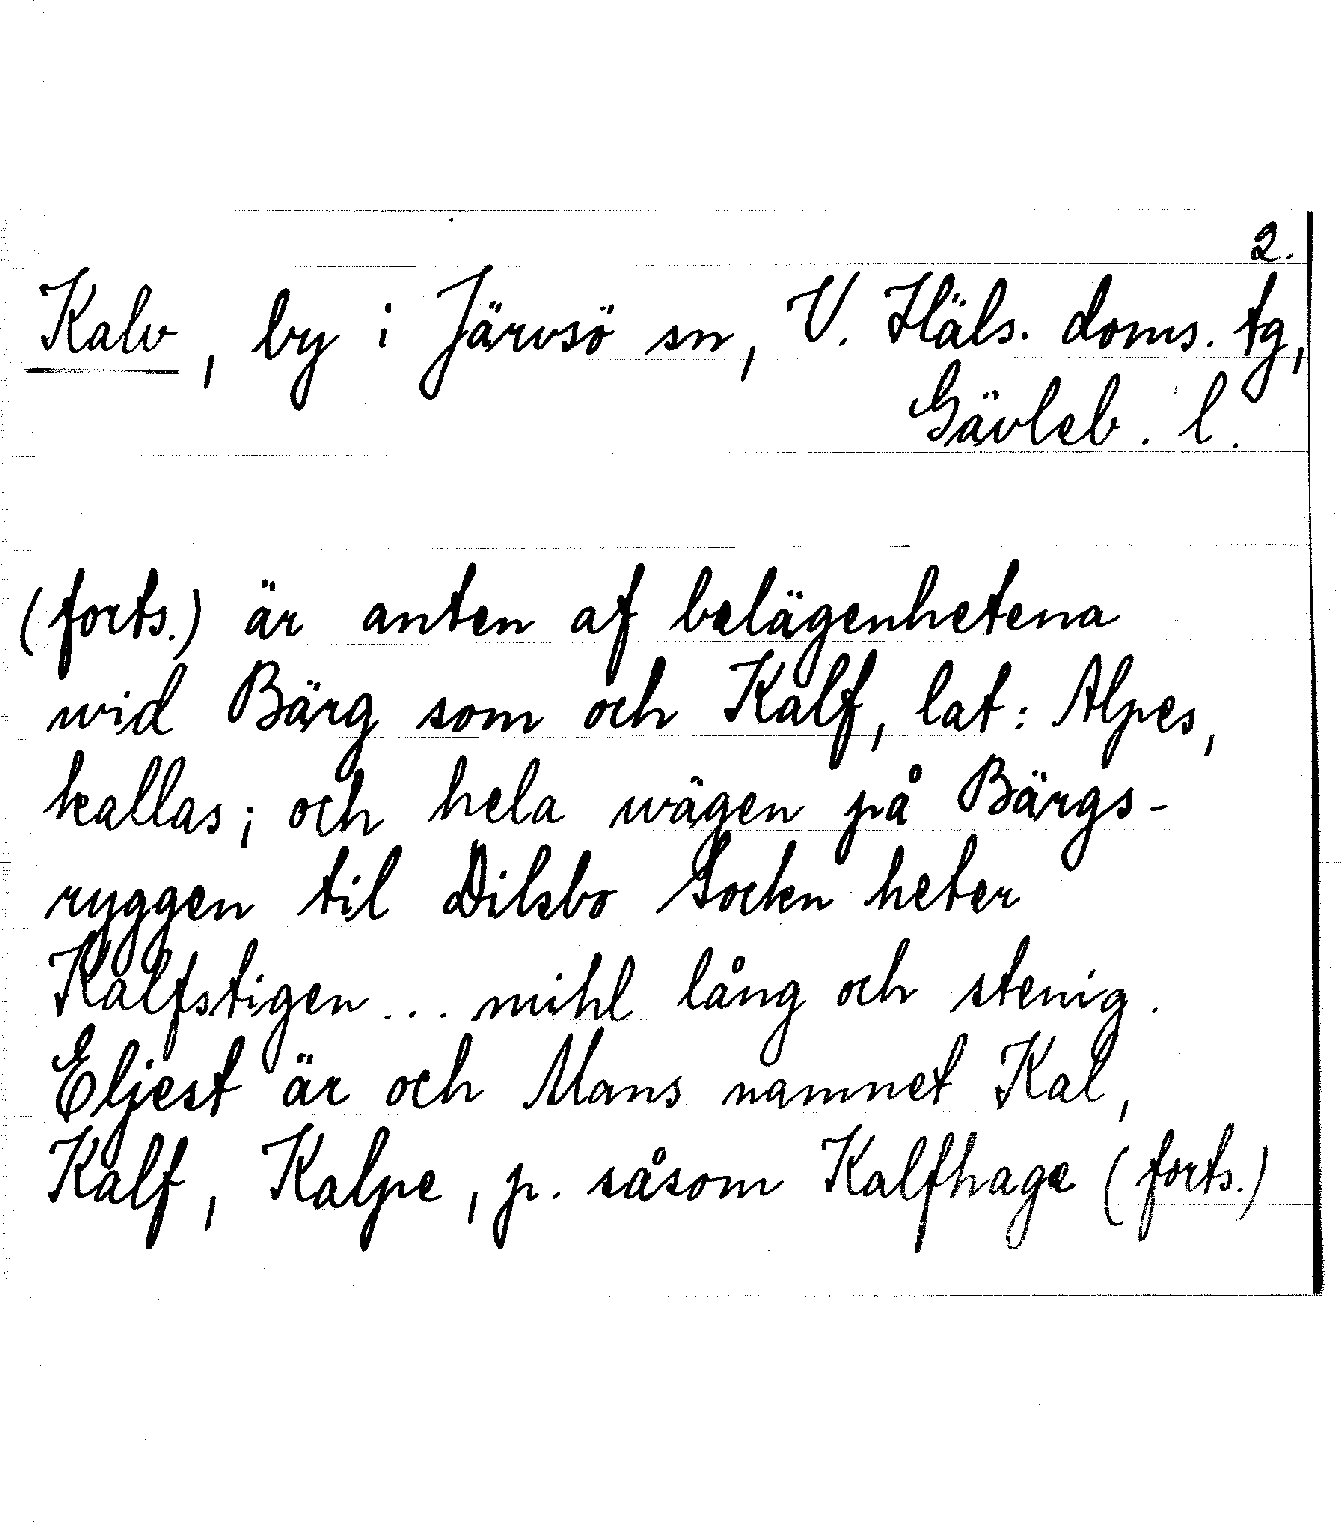 2.
Kalv, by i Järvsö sn, V. Häls. doms. tg,
Gävleb. l.
(forts.) är anten af belägenhetena
wid Bärg som och Kalf, lat: Alpes,
kallas; och hela wägen på Bärgs-
ryggen til Dilsbo Sockn heter
Kalfstigen ... mihl lång och stenig.
Eljest är och Mans namnet Kal,
Kalf, Kalpe, p. såsom Kalfhage (forts.)